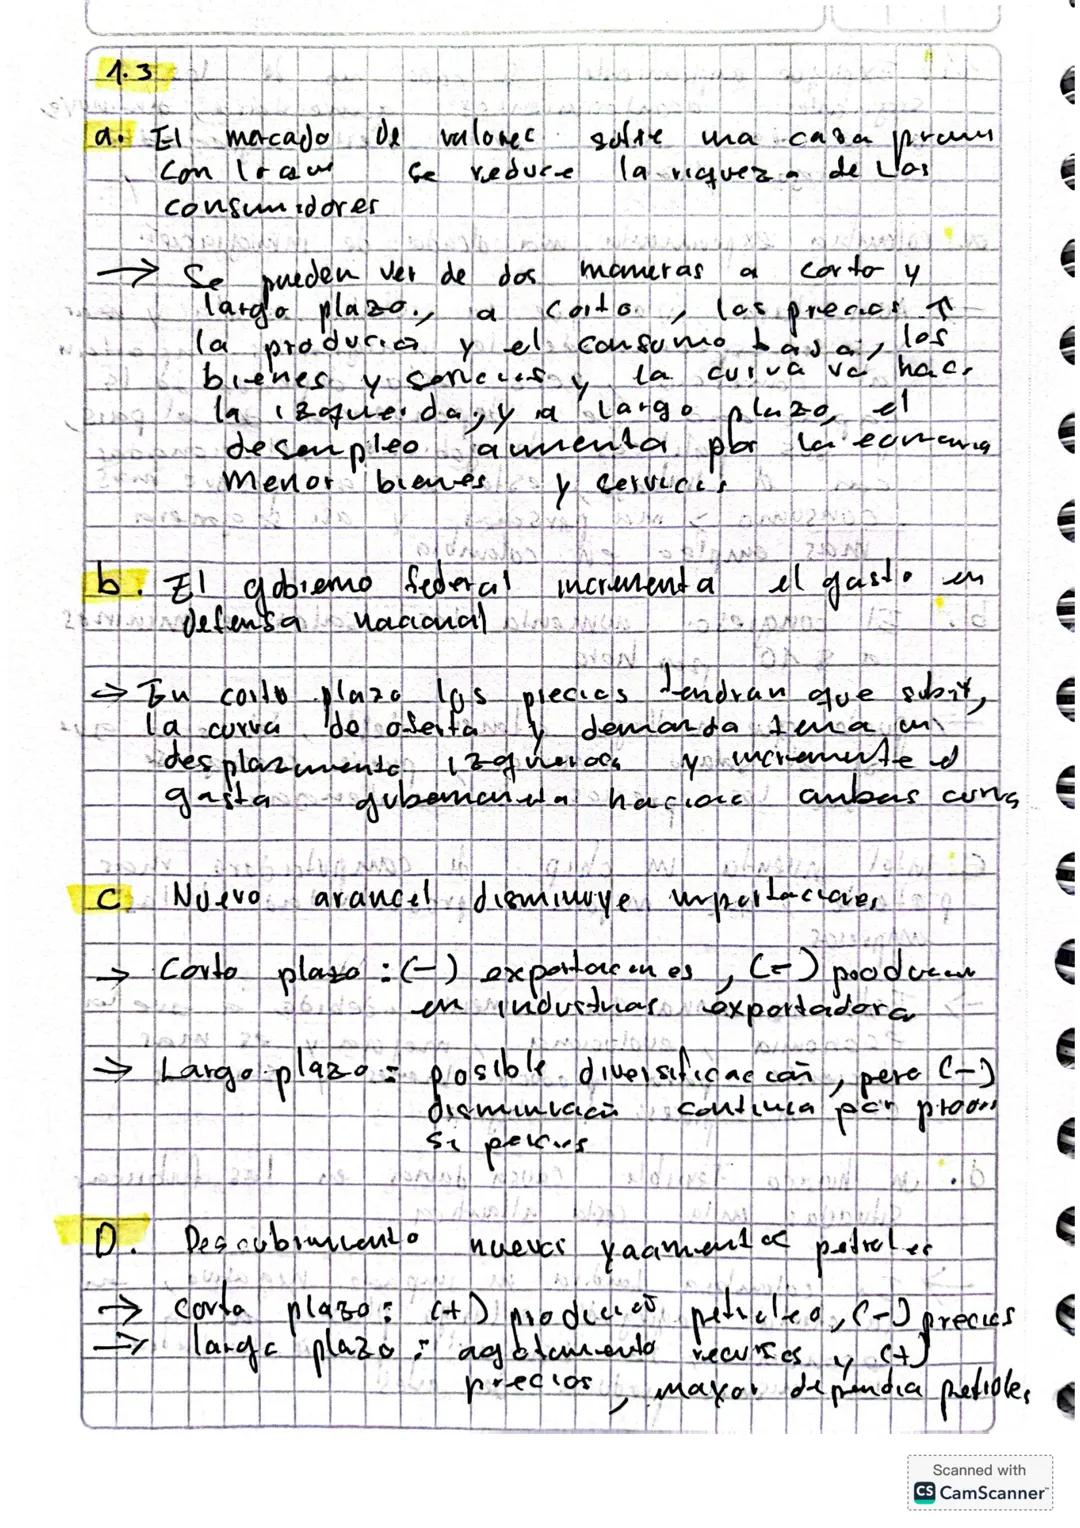 1.3
a. El mercado de valores sufre una caida
con lo que se reduce la riqueza de los
consumidores
→ Se pueden ver de dos maneras a corto y
largo plazo, a corto, los precios ↑
la producción y el consumo baja, los
bienes y servicios y la curva va hac.
la izquierda, y a largo plazo, el
desempleo aumenta por la economia
menor bienes y servicios
b. El gobierno federal incrementa el gasto en
defensa nacional
→ En corto plazo los precios tendran que subir,
la curva de oferta y demanda
desplazamiento y incremente el
gasto ambas
C. Nuevo arancel disminuye importaciones
→ Corto plazo: (-) exportaciones, (-) produccion
en industrias exportadora
→ Largo plazo: posible diversificación, pero (-)
disminución continua por
D. Descubrimiento nuevos yacimientos petroleo
→ corto plazo: (+) produccion petroleo, (-) precios
→ largo plazo: agotamiento recursos y (+)
precios, mayor petroleo
Scanned with
CS CamScanner